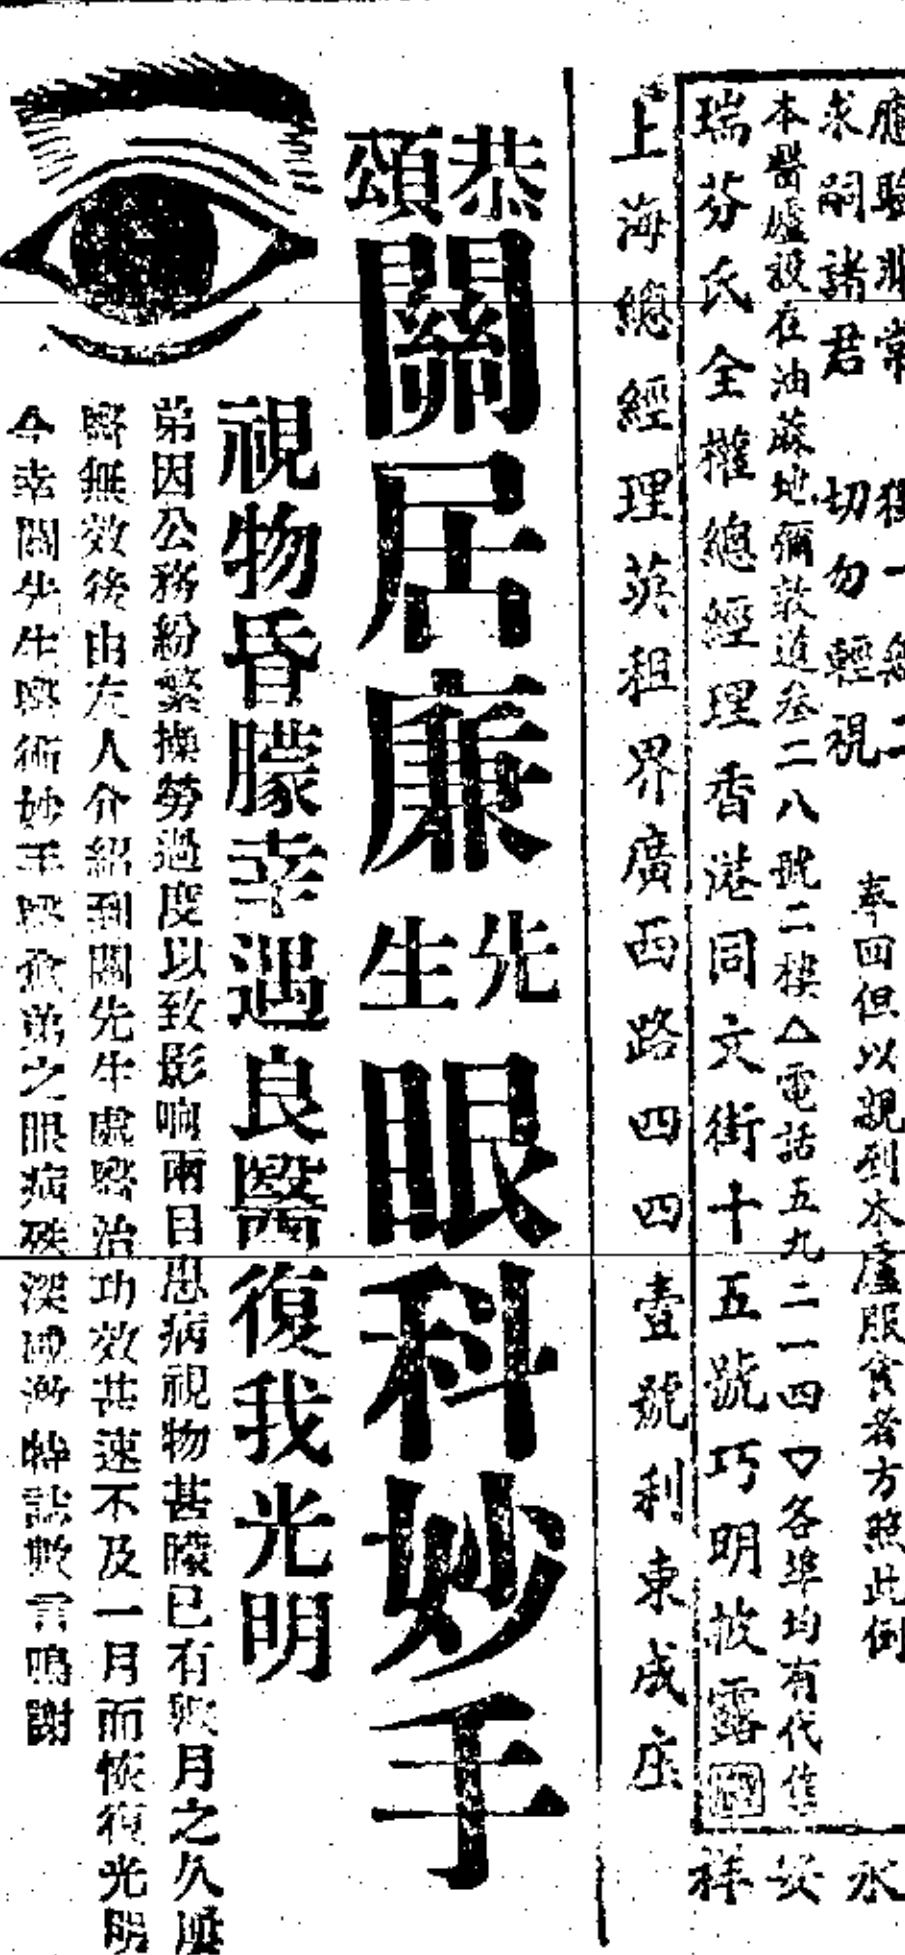 應驗非常 獨一無二
求嗣諸君 切勿輕視
奉回但以親到本廬服食者方照此例
本醫廬設在油蔴地彌敦道叁二八號二樓△電話五九二一四▽各埠均有代售
瑞芬氏全權總經理香港同文街十五號巧明披露
上海總經理英租界廣西路四四壹號利東成庄
永
安
祥
恭頌
關居廉先生眼科妙手
視物昏朦幸遇良醫復我光明
弟因公務紛繁操勞過度以致影响兩目患病視物甚矇已有數月之久屢
醫無效後由友人介紹到關先生處醫治功效甚速不及一月而恢復光明
今幸關先生醫術妙手醫愈弟之眼病殊深感激特誌數言鳴謝